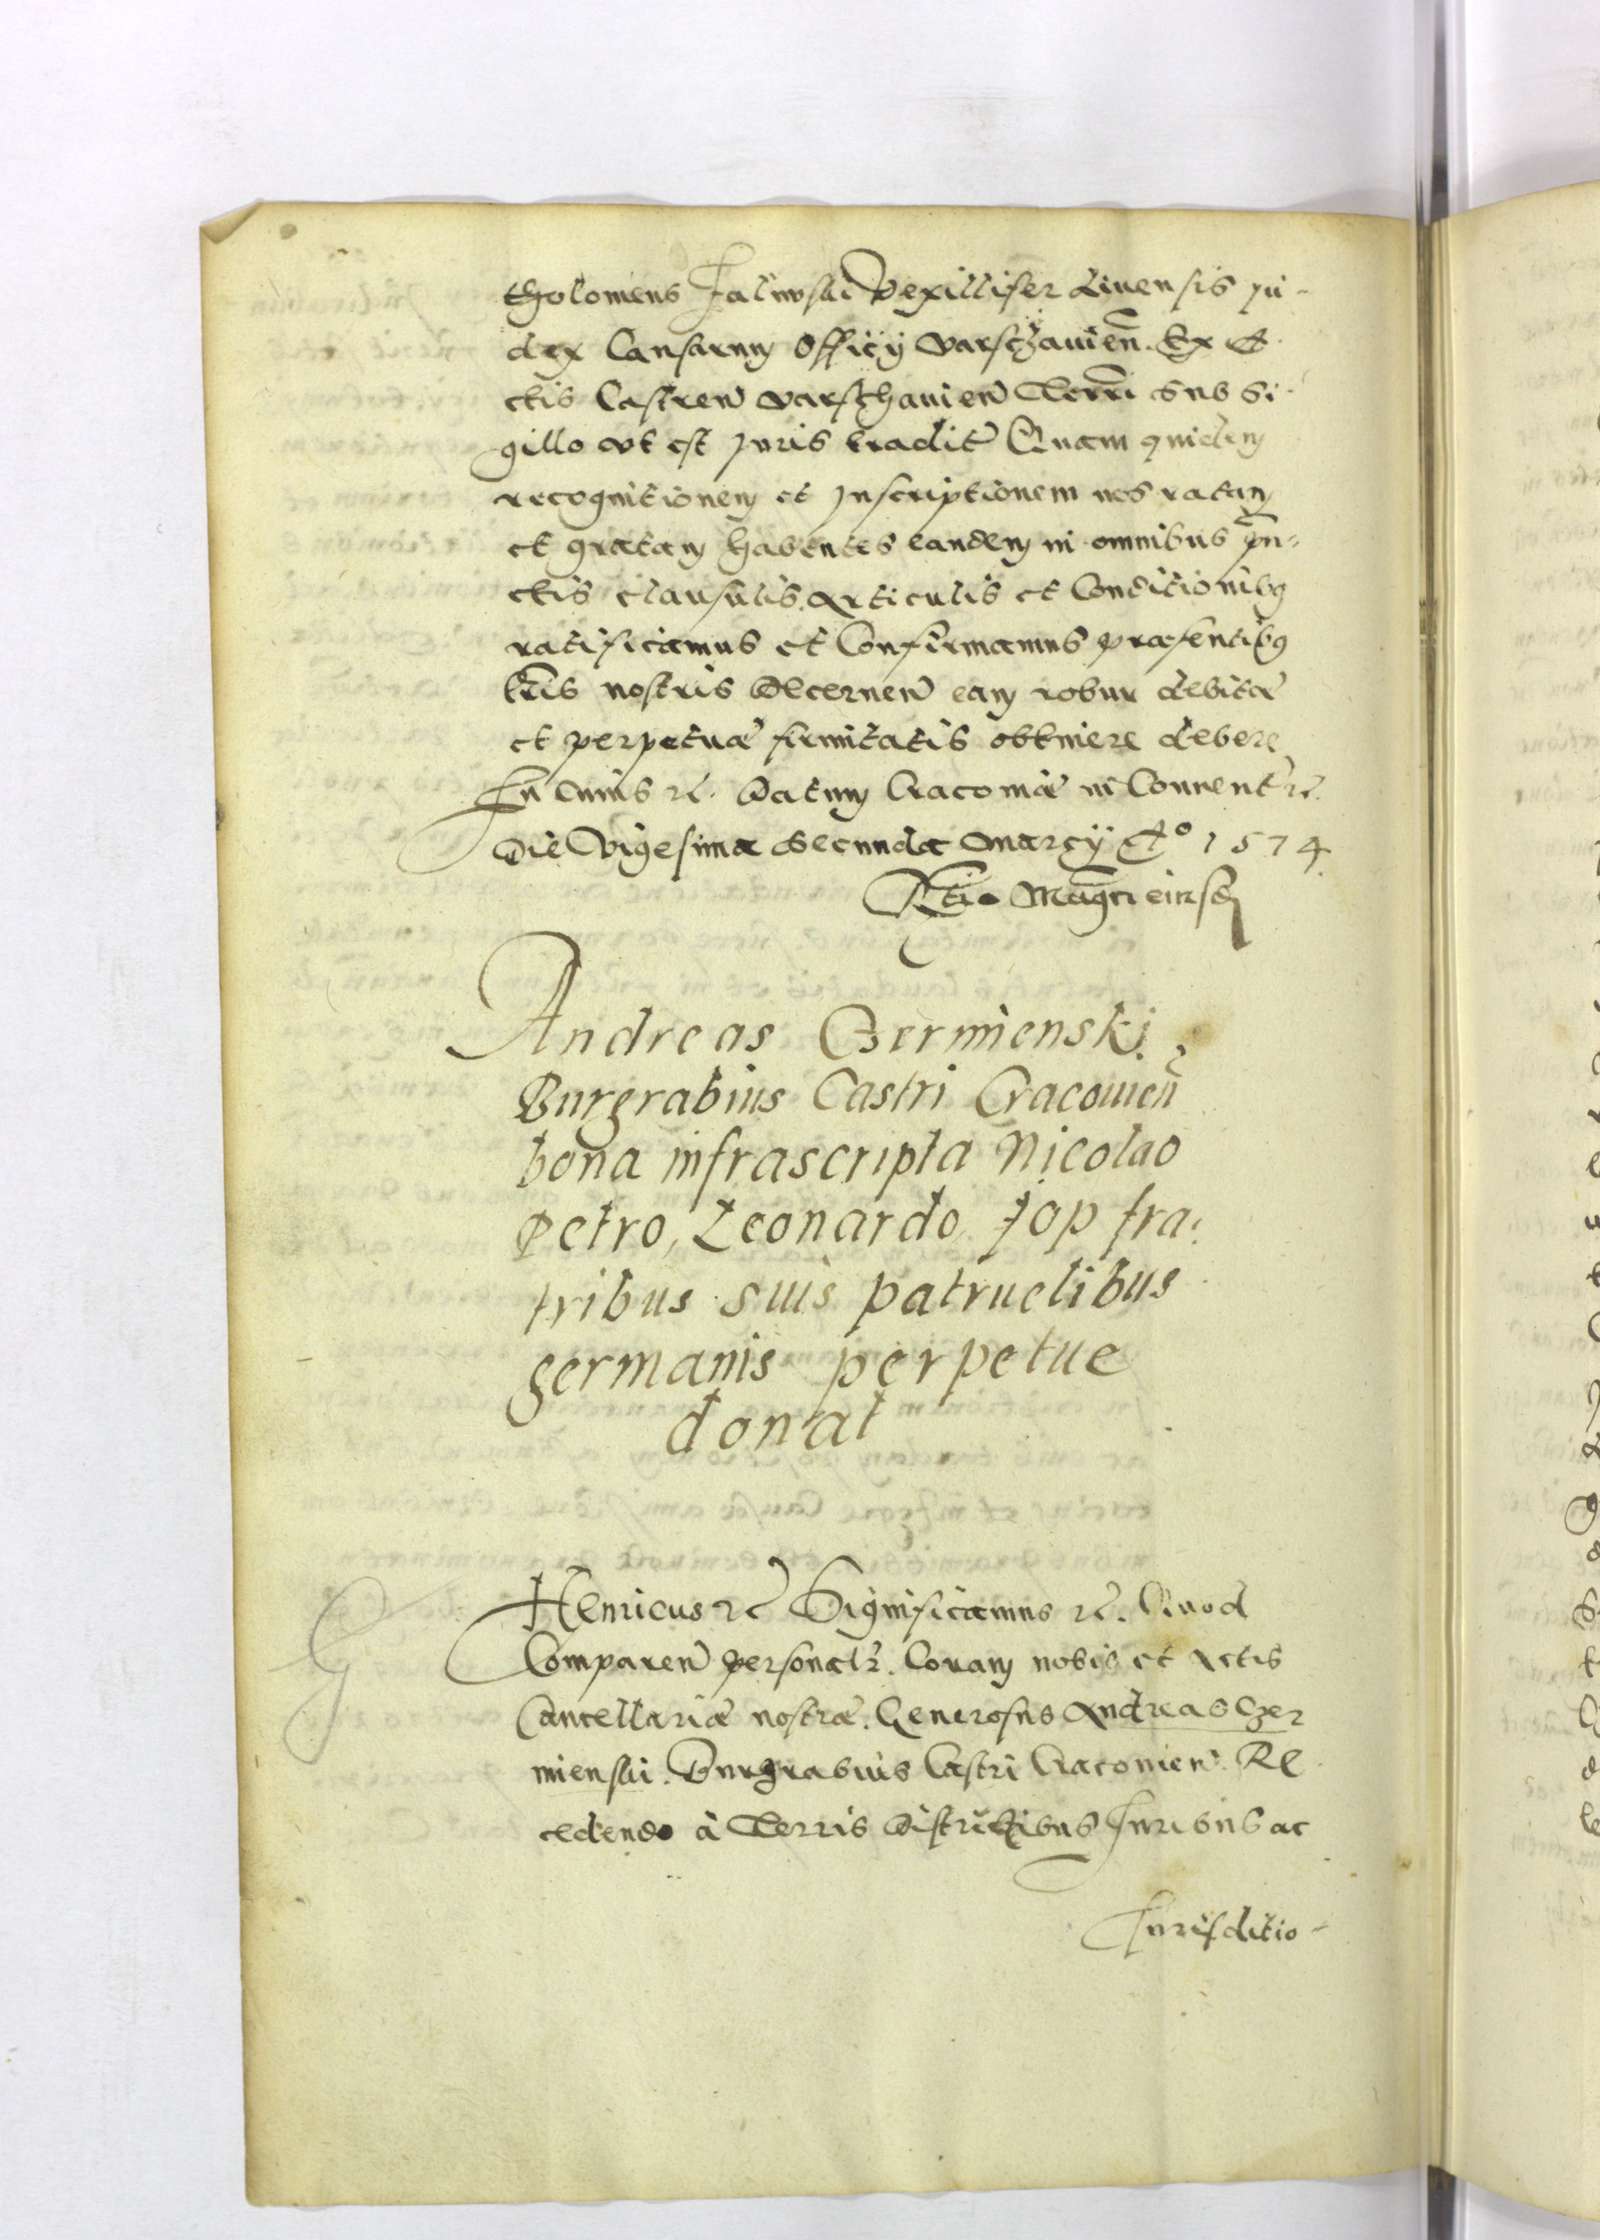 tholomeus Jalinski Vexillifer Liuensis Ju-
dex Causarum Officij Varschauien̄. Ex A-
ctis Castren̄ Varschauien̄ Terrī sub Si-
gillo vt est Juris tradit̄ Quam quidem
recognitionem et Inscriptionem nos ratam
et gratam habentes eandem in omnibus pun-
ctis clausulis Articulis et Conditionibꝫ
ratificamus et Confirmamus præsentibꝫ
lr̄is nostris Decernen̄ eam robur debitæ
et perpetuæ firmitatis obtinere debere
In Cuius etc. Datum Cracouiæ in Conuent̄ etc.
Die Vigesima Secunda Marcij A° 1574
Rt̄io Magc̄i eiusd
Andreas Czermienski
Burgrabius Castri Cracouien̄
bona infrascripta Nicolao
Petro, Leonardo, Jop fra-
tribus suis patruelibus
germanis perpetue
donat
Henricus etc Significamus etc. Quod
Comparen̄ personalr̄. Coram nobis et Actis
Cancellariæ nostræ. Generosus Andreas Czer
mienski. Burgrabius Castri Cracouien̄. Re
cedendo à Terris Districtibus Juribus ac
Jurisditio-